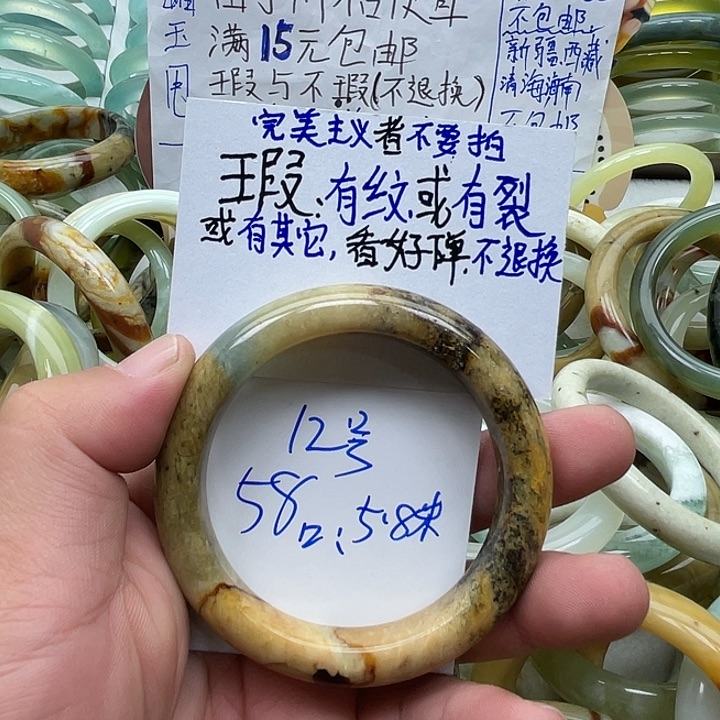 满15元包邮
瑕与不瑕(不退换)
不包邮
新疆.西藏
清海海南
不包邮
完美主义者不要拍
瑕:有纹.或有裂
或有其它,看好弹.不退换
12号
58口:5.8米